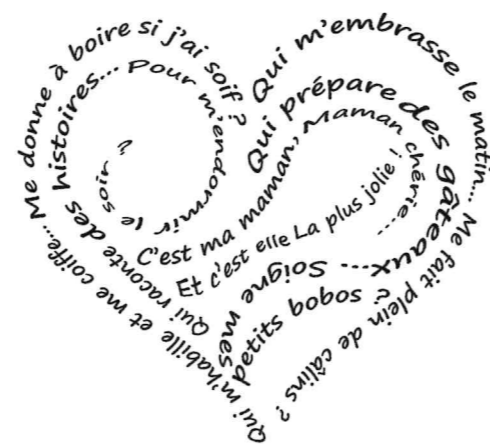 Qui m'embrasse le matin... Me fait plein de câlins ?
Qui m'habille et me coiffe... Me donne à boire si j'ai soif ?
Qui prépare des gâteaux... Soigne mes petits bobos ?
Qui raconte des histoires... Pour m'endormir le soir ?
C'est ma maman, Maman chérie...
Et c'est elle La plus jolie !